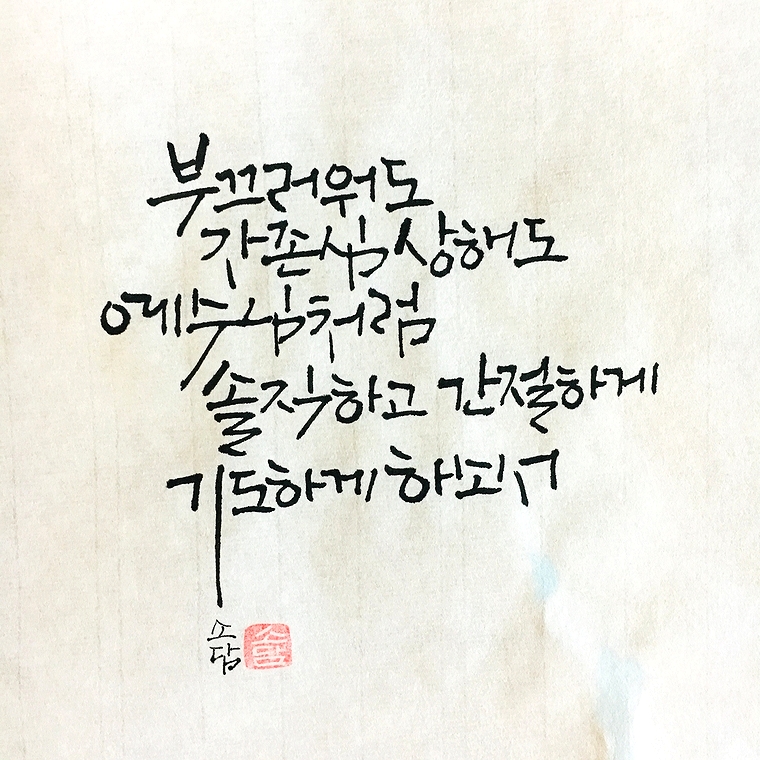 부끄러워도
자존심 상해도
예수님처럼
솔직하고 간절하게
기도하게 하
소담